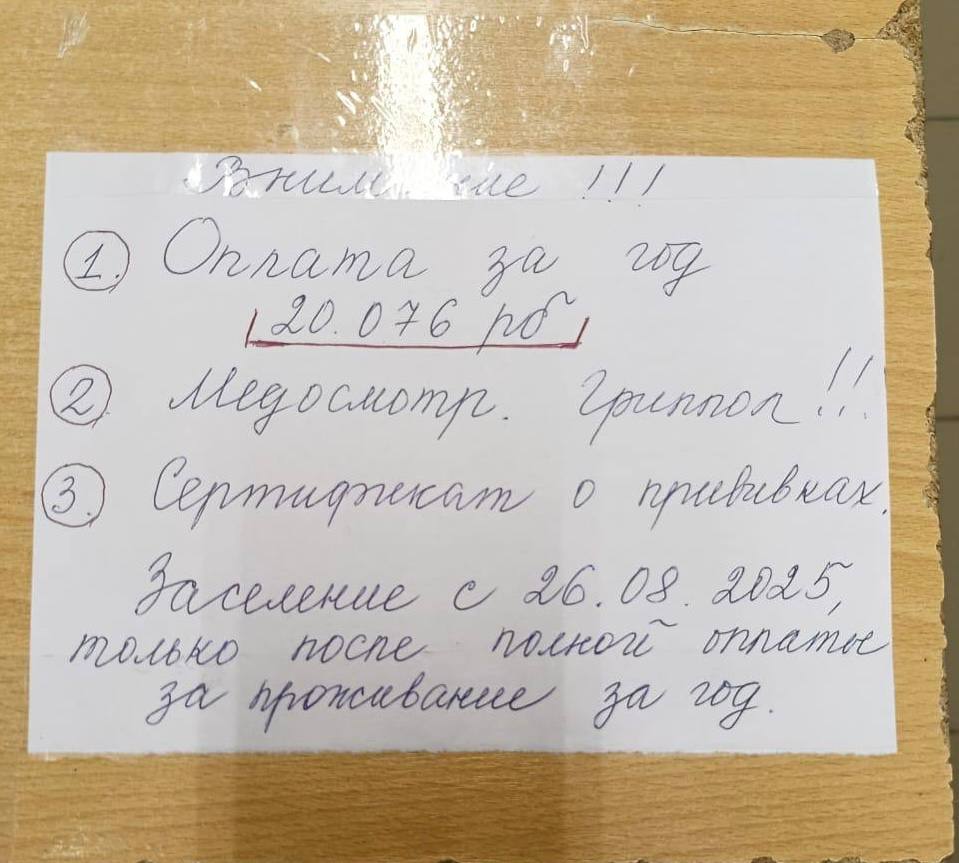 Внимание !!!
1. Оплата за год
20.076 рб
2. Медосмотр. Гриппол!!!
3. Сертификат о прививках.
Заселение с 26.08.2025,
только после полной оплаты
за проживание за год.